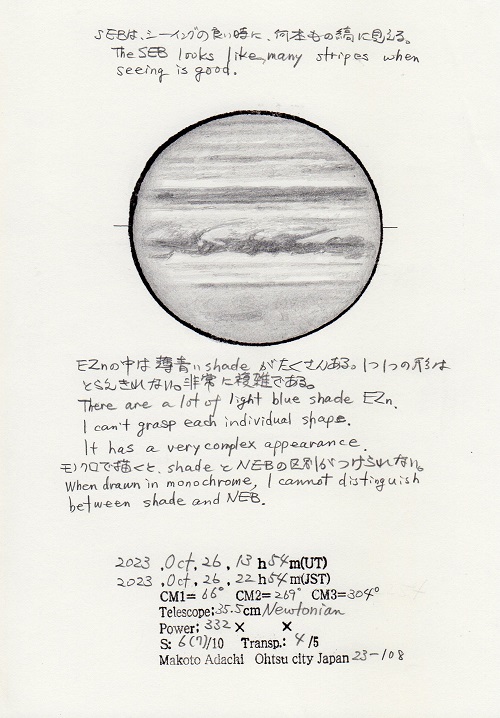 SEBは、シーイングの良い時に、何本もの縞に見える。
The SEB looks like many stripes when
seeing is good.
EZnの中は薄青いshadeがたくさんある。1つ1つの形は
とらえきれない。非常に複雑である。
There are a lot of light blue shade EZn.
I can't grasp each individual shape.
It has a very complex appearance.
モノクロで描くと、shadeとNEBの区別がつけられない。
When drawn in monochrome, I cannot distinguish
between shade and NEB.
2023 .Oct. 26, 13 h54m(UT)
2023 .Oct. 26, 22 h54m(JST)
CM1= 66° CM2= 269° CM3=304°
Telescope:35.5cm Newtonian
Power: 332× ×
S: 6(7)/10 Transp.: 4/5
Makoto Adachi Ohtsu city Japan 23-108